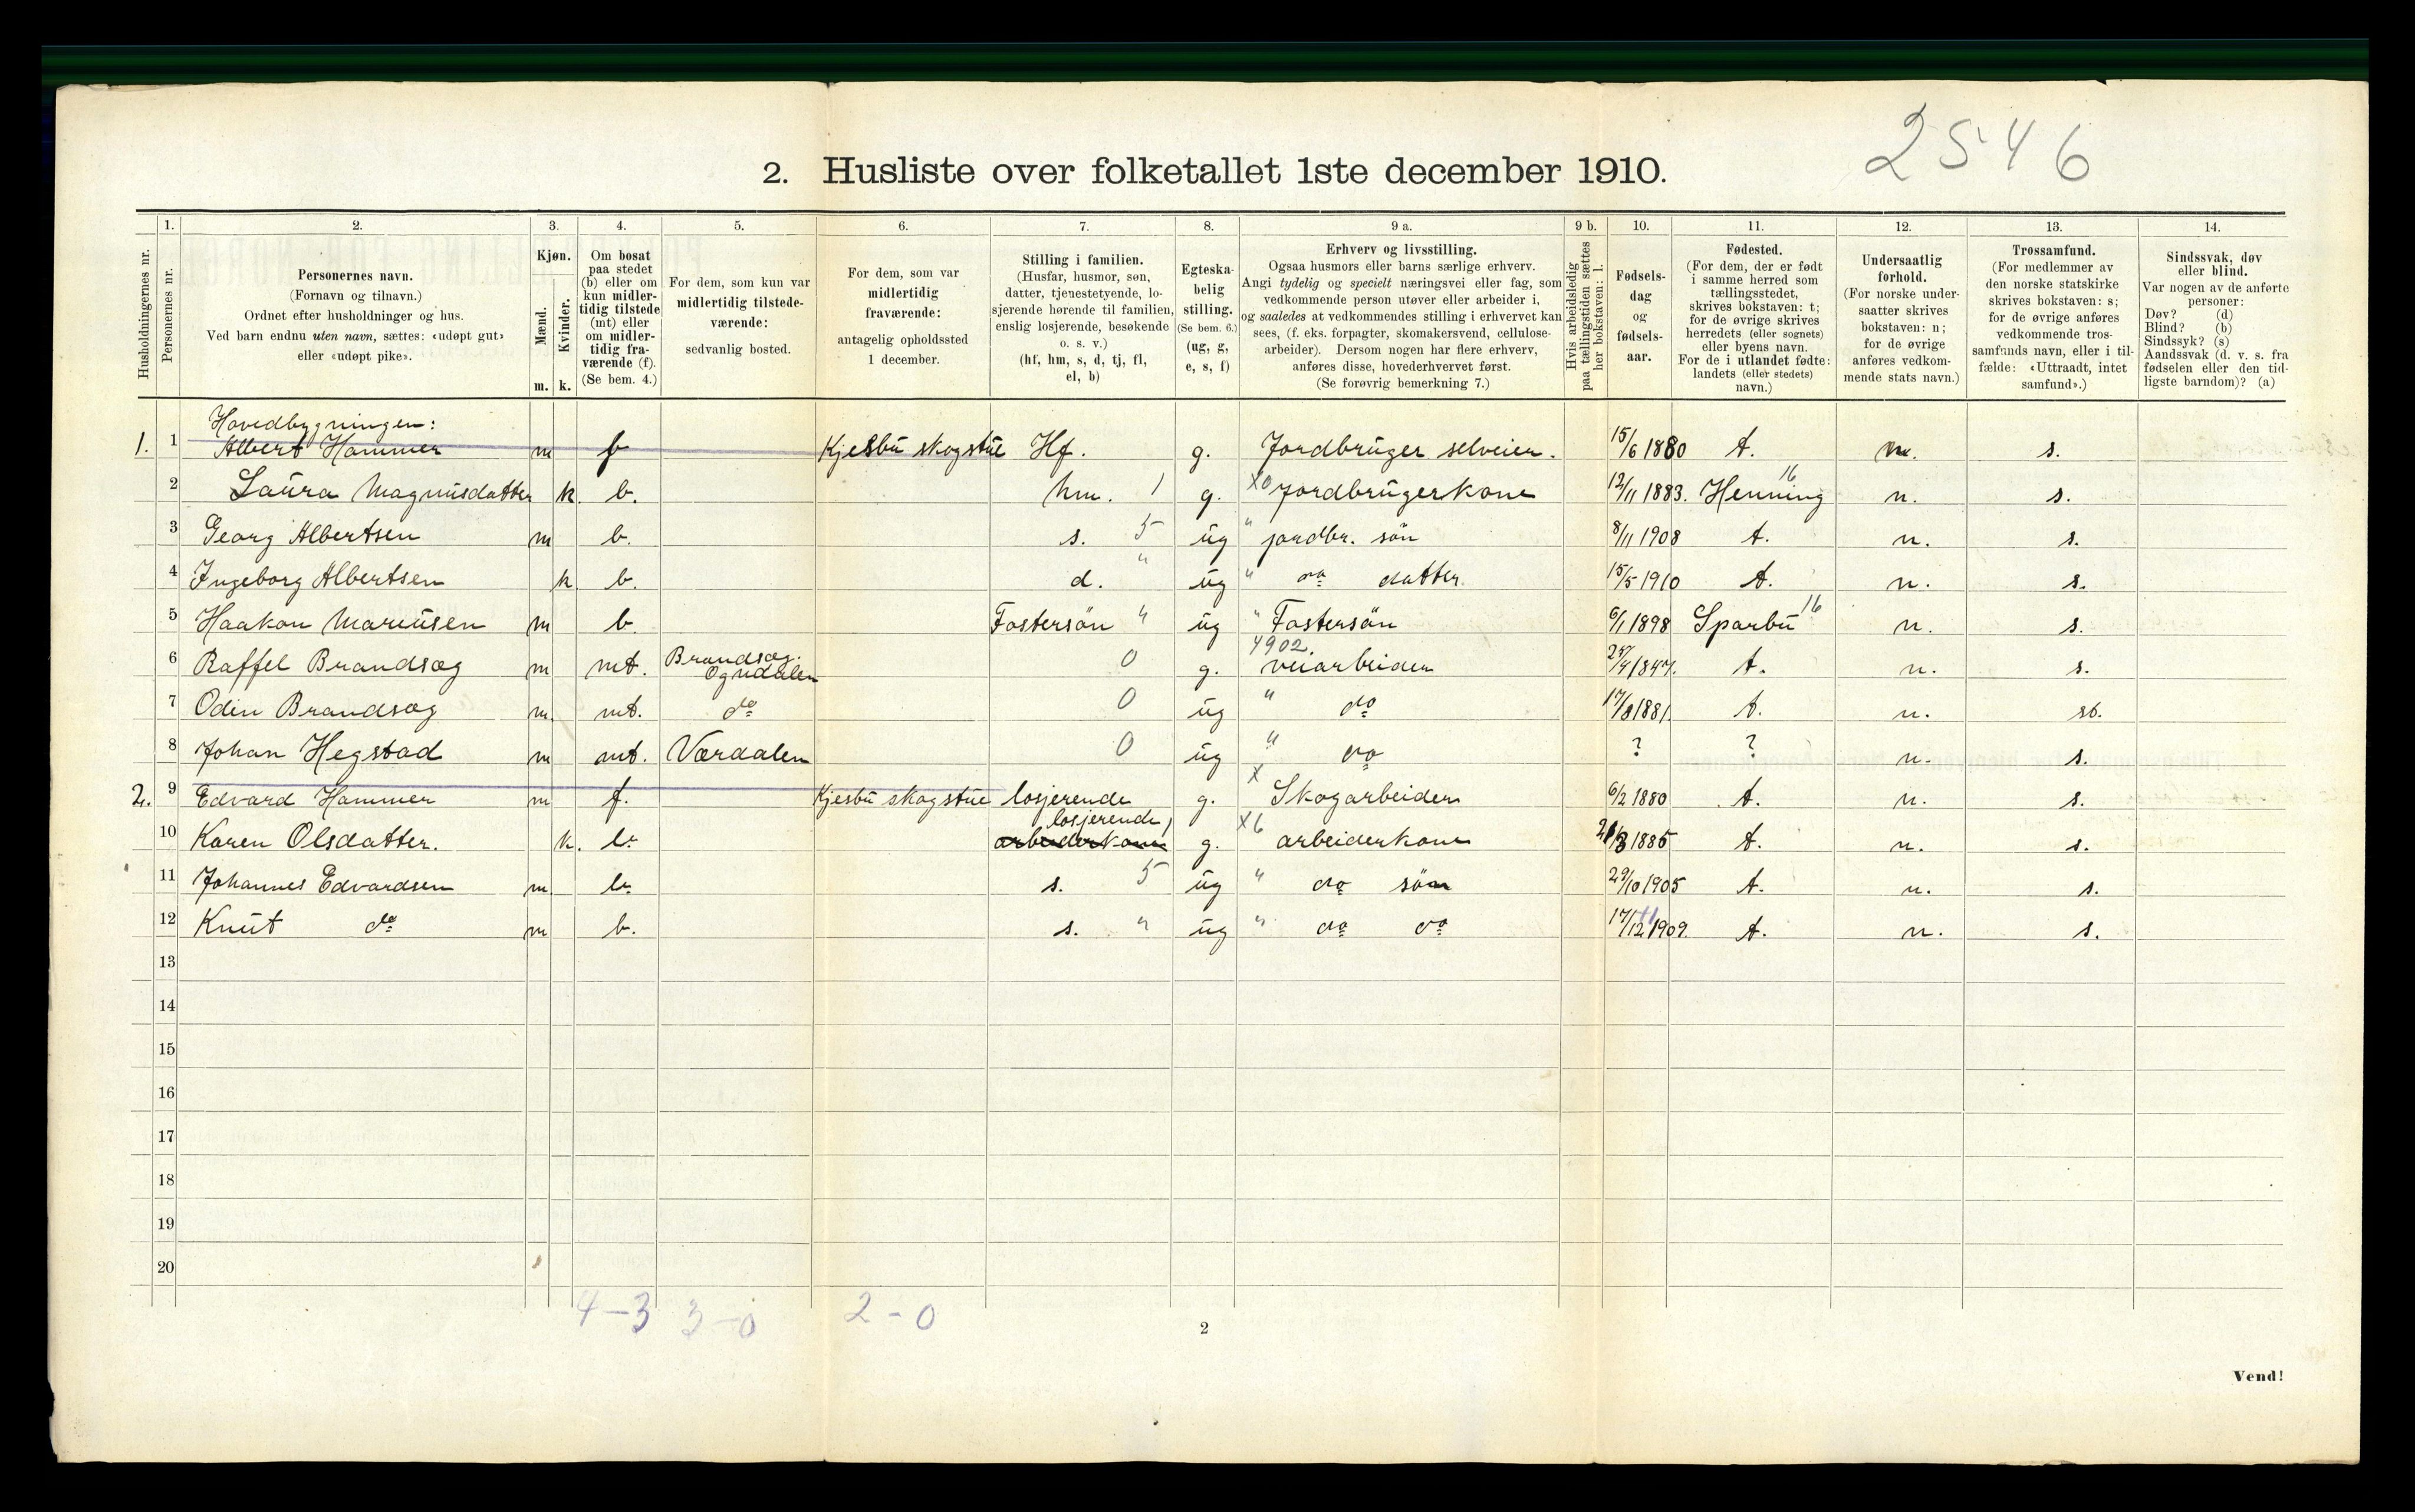 2546
2. Husliste over folketallet 1ste december 1910.
Husholdningernes nr.
1.
Personernes nr.
2.
Personernes navn.
(Fornavn og tilnavn.)
Ordnet efter husholdninger og hus.
Ved barn endnu uten navn, sættes: «udøpt gut»
eller «udøpt pike».
3.
Kjøn.
Mænd.
Kvinder.
m. k.
4.
Om bosat
paa stedet
(b) eller om
kun midler-
tidig tilstede
(mt) eller
om midler-
tidig fra-
værende (f).
(Se bem. 4.)
5.
For dem, som kun var
midlertidig tilstede-
værende:
sedvanlig bosted.
6.
For dem, som var
midlertidig
fraværende:
antagelig opholdssted
1 december.
7.
Stilling i familien.
(Husfar, husmor, søn,
datter, tjenestetyende, lo-
sjerende hørende til familien,
enslig losjerende, besøkende
o. s. v.)
(hf, hm, s, d, tj, fl,
el, b)
8.
Egteska-
belig
stilling.
(Se bem. 6.)
(ug, g,
e, s, f)
9 a.
Erhverv og livsstilling.
Ogsaa husmors eller barns særlige erhverv.
Angi tydelig og specielt næringsvei eller fag, som
vedkommende person utøver eller arbeider i,
og saaledes at vedkommendes stilling i erhvervet kan
sees, (f. eks. forpagter, skomakersvend, cellulose-
arbeider). Dersom nogen har flere erhverv,
anføres disse, hovederhvervet først.
(Se forøvrig bemerkning 7.)
9 b.
Hvis arbeidsledig
paa tællingstiden sættes
her bokstaven: l.
10.
Fødsels-
dag
og
fødsels-
aar.
11.
Fødested.
(For dem, der er født
i samme herred som
tællingsstedet,
skrives bokstaven: t;
for de øvrige skrives
herredets (eller sognets)
eller byens navn.
For de i utlandet fødte:
landets (eller stedets)
navn.)
12.
Undersaatlig
forhold.
(For norske under-
saatter skrives
bokstaven: n;
for de øvrige
anføres vedkom-
mende stats navn.)
13.
Trossamfund.
(For medlemmer av
den norske statskirke
skrives bokstaven: s;
for de øvrige anføres
vedkommende tros-
samfunds navn, eller i til-
fælde: «Uttraadt, intet
samfund».)
14.
Sindssvak, døv
eller blind.
Var nogen av de anførte
personer:
Døv? (d)
Blind? (b)
Sindssyk? (s)
Aandssvak (d. v. s. fra
fødselen eller den tid-
ligste barndom)? (a)
Hovedbygningen:
1. 1 Albert Hammer m f Kjesbu skogstue Hf. g. Jordbruger selveier. 15/6 1880 t. n. s.
2 Laura Magnusdatter k. b. hm. 1 g. x0 jordbrugerkone 12/11 1883. Henning 16 n. s.
3 Georg Albertsen m b. s. 5 ug " jordbr. søn 8/11 1908 t. n. s.
4 Ingeborg Albertsen k b. d. " ug " do datter 15/5 1910 t. n. s.
5 Haakon Mariusen m b. Fostersön " ug " Fostersön 6/1 1898 Sparbu 16 n. s.
4902.
6 Raffel Brandsæg m mt. Brandsæg. Ogndalen 0 g. veiarbeider 1847. t. n. s.
7 Odin Brandsæg m. mt. do 0 ug " do 17/8 1881. t. n. st.
8 Johan Hegstad m mt. Værdalen 0 ug " do ? ? n. s.
2. 9 Edvard Hammer m f. Kjesbu skogstue losjerende g. x Skogarbeider 6/2 1880 t. n. s.
10 Karen Olsdatter. k. b. losjerende arbeiderkone 1 g. x6 arbeiderkone 1885 t. n. s.
11 Johannes Edvardsen m b. s. 5 ug " do søn 29/10 1905 t. n. s.
12 Knut do m b. s. " ug " do do 17/12 11 1909. t. n. s.
13
14
15
16
17
18
19
20
4-3 3-0 2-0
2
Vend!